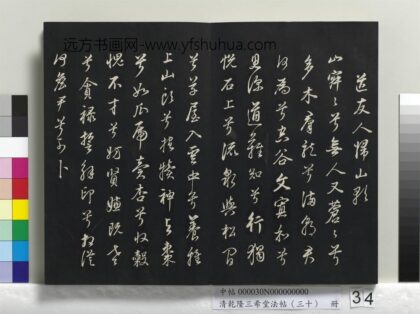 远方书画网-www.yfshuhua.com
送友人歸山歌
山寂寂兮無人又蒼蒼兮
多木羣龍兮滿朝君
何為兮空谷文寡和兮
思深道難知兮行獨
悦石上兮流泉與松間
兮草屋入雲中兮養雞
上山頭兮抱犢神與棗
兮如瓜虎賣杏兮收穀
愧不才兮妨賢嫌既老
兮貪祿誓解印兮相從
何詹尹兮可卜
中帖 000030N000000000
清乾隆三希堂法帖(三十) 冊
34